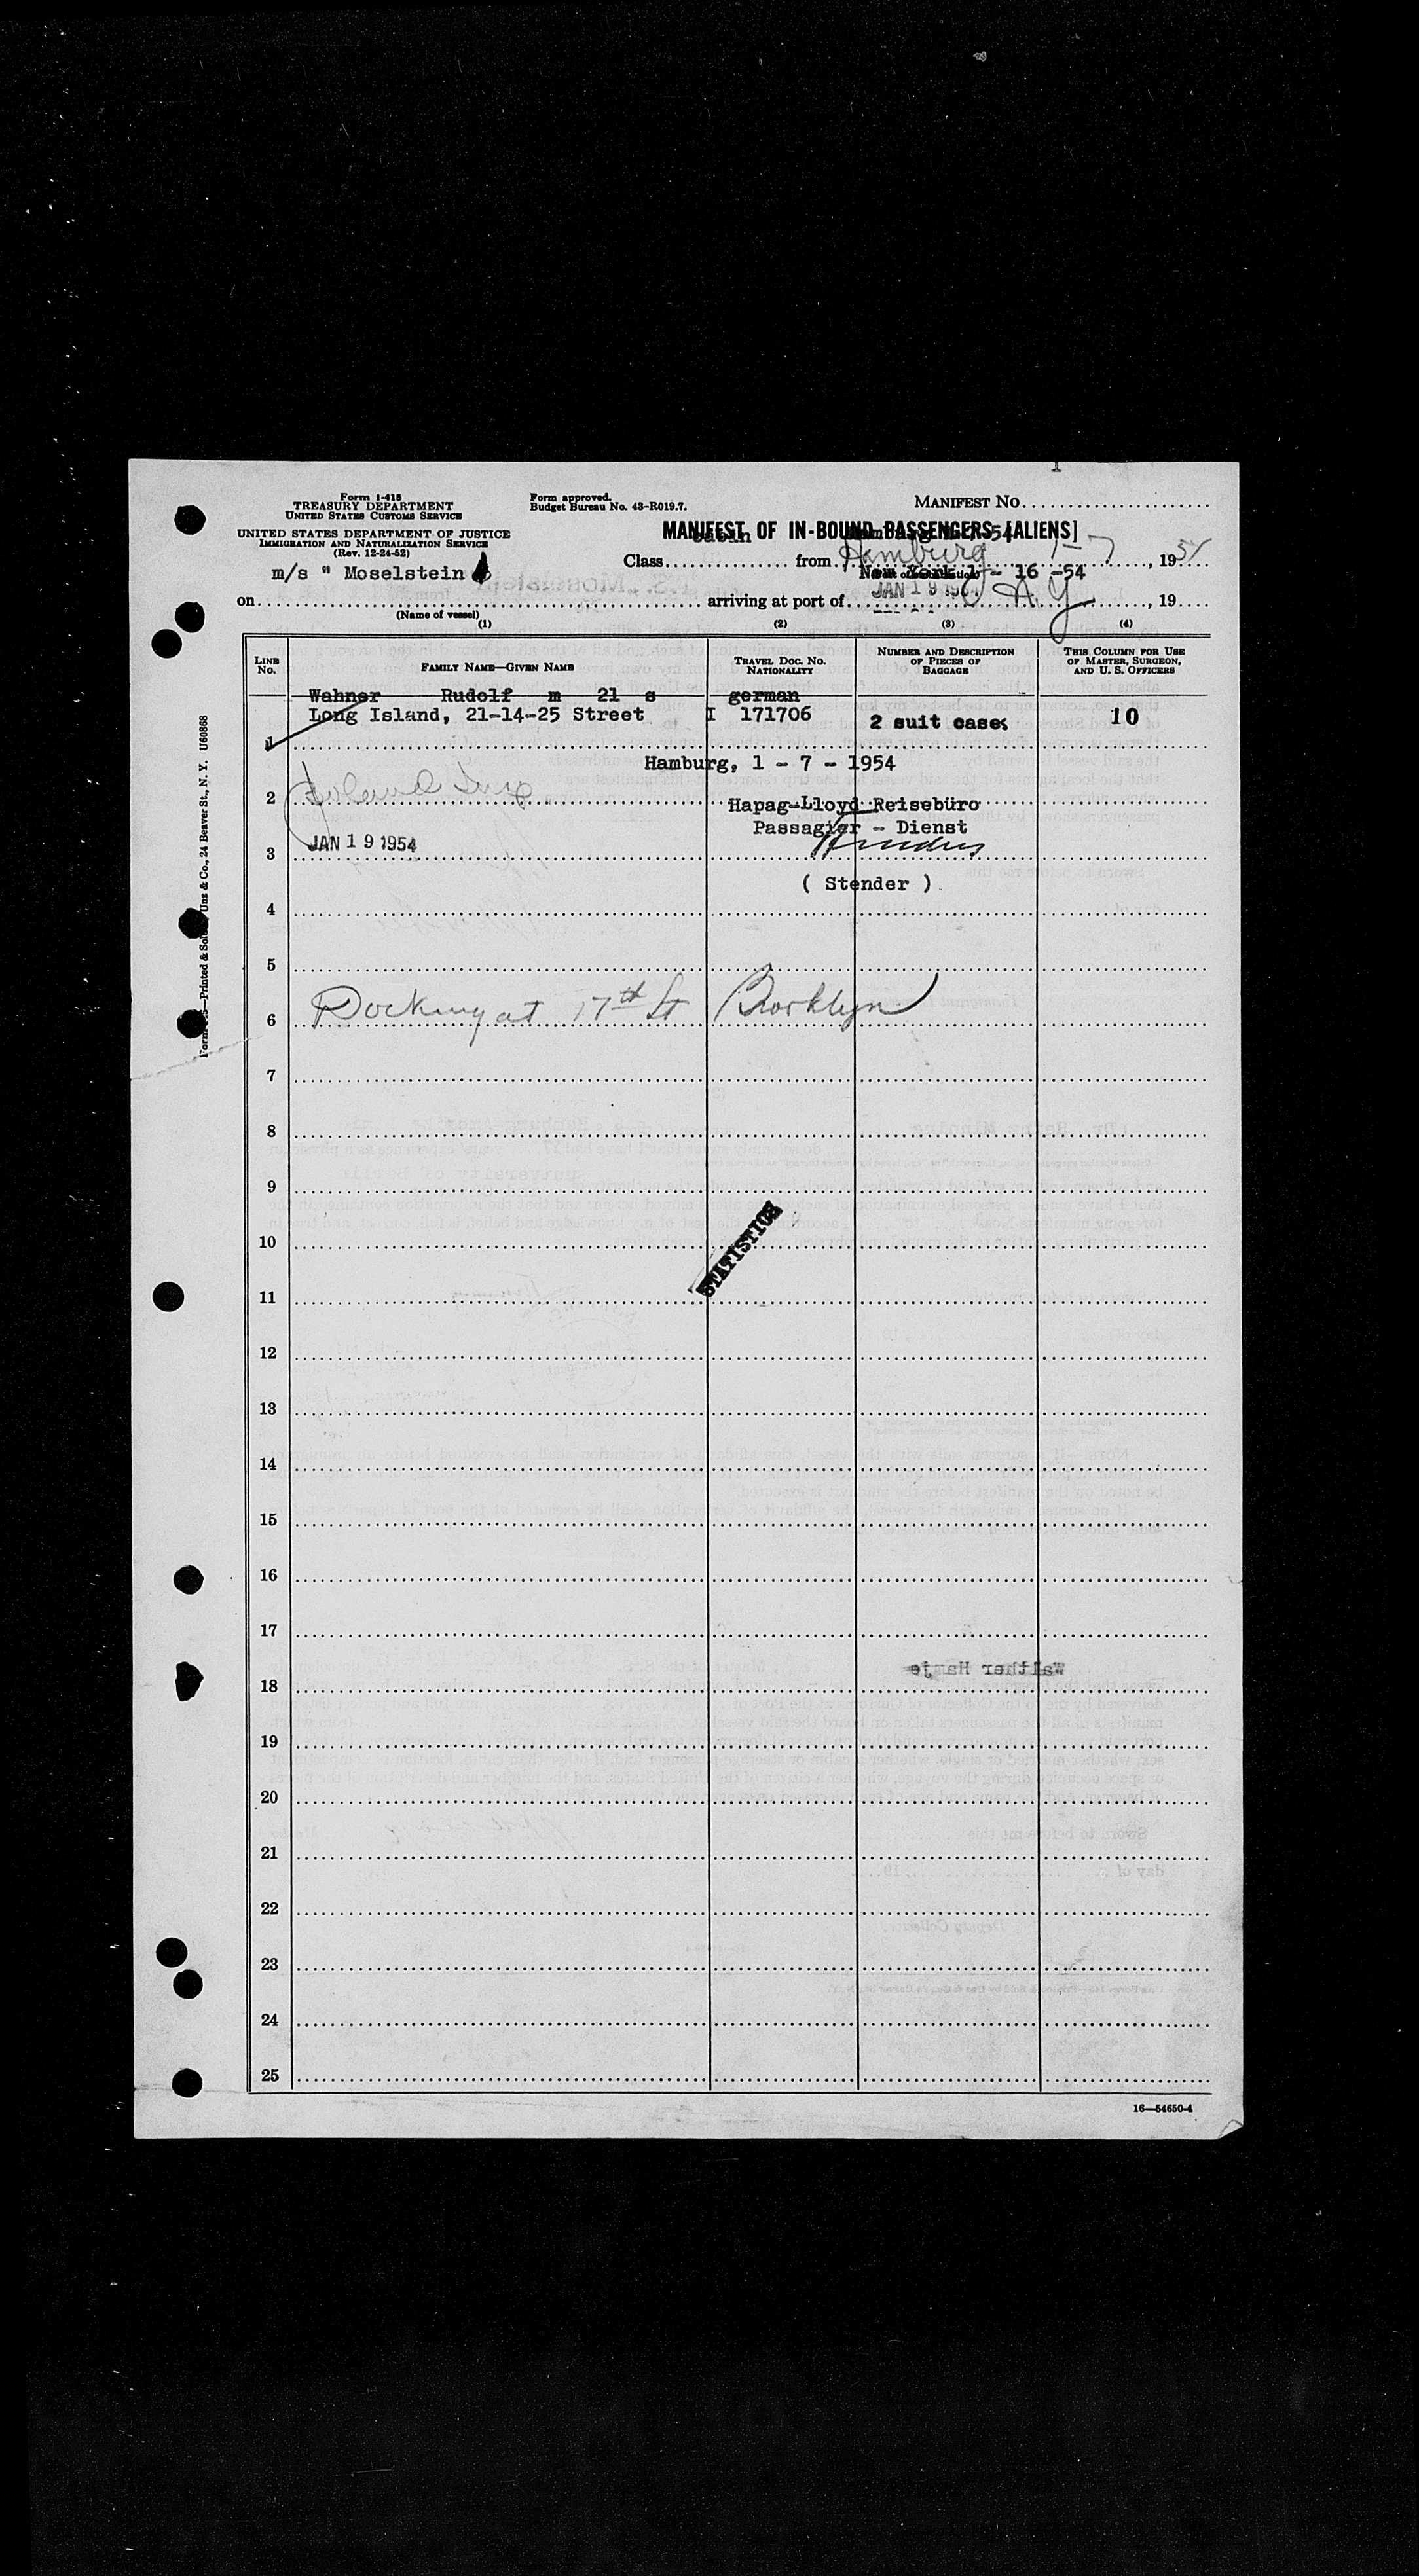 1
Form I-415
TREASURY DEPARTMENT
UNITED STATES CUSTOMS SERVICE
UNITED STATES DEPARTMENT OF JUSTICE
IMMIGRATION AND NATURALIZATION SERVICE
(Rev. 12-24-52)
Form approved.
Budget Bureau No. 43-R019.7.
MANIFEST NO.
MANIFEST OF IN-BOUND PASSENGERS [ALIENS]
Class from Hamburg 1-7, 1954
m/s " Moselstein
New York 1 - 16 -54
JAN 19 1954
on arriving at port of N Y, 19
(Name of vessel)
(1) (2) (3) (4)
LINE NO. FAMILY NAME—GIVEN NAME TRAVEL DOC. NO. NATIONALITY NUMBER AND DESCRIPTION OF PIECES OF BAGGAGE THIS COLUMN FOR USE OF MASTER, SURGEON, AND U. S. OFFICERS
Wahner Rudolf m 21 s german
Long Island, 21-14-25 Street I 171706 2 suit cases 10
1
Hamburg, 1 - 7 - 1954
2
Hapag-Lloyd Reisebüro
Passagier - Dienst
JAN 19 1954
3
( Stender )
4
5
6 Docking at 17th St Brooklyn
7
8
9
10
STATISTICS
11
12
13
14
15
16
17
Walther Hamje
18
19
20
21
22
23
24
25
16—54650-4
Unz & Co., 24 Beaver St., N. Y. U60868